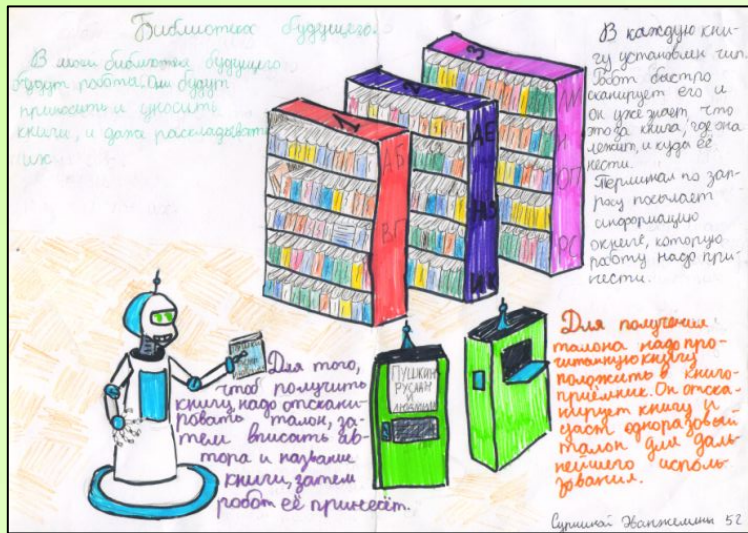 Библиотека будущего.
В моей библиотеке будущего
будут робота. Они будут
приносить и уносить
книги, и даже раскладывать
их
В каждую кни-
гу установлен чип.
Робот быстро
сканирует его и
он уже знает, что
это за книга, где она
лежит, и куда её
нести.
Терминал по зап-
росу посылает
информацию
о книге, которую
работу надо при-
нести.
1
2
3
АБ
ВГ
ДЕ
ИК
ЛМ
Н
ОП
РС
ПУШКИН
РУСЛАН
И
ЛЮДМИЛА
Для того,
чтоб получить
книгу, надо отскани-
ровать талон, за-
тем вписать ав-
тора и название
книги, затем
робот её принесёт.
Для получения
талона надо про-
читанную книгу
положить в книго-
приёмник. Он отска-
нирует книгу и
даст одноразовый
талон для даль-
нейшего исполь-
зования.
Эванжелины 52